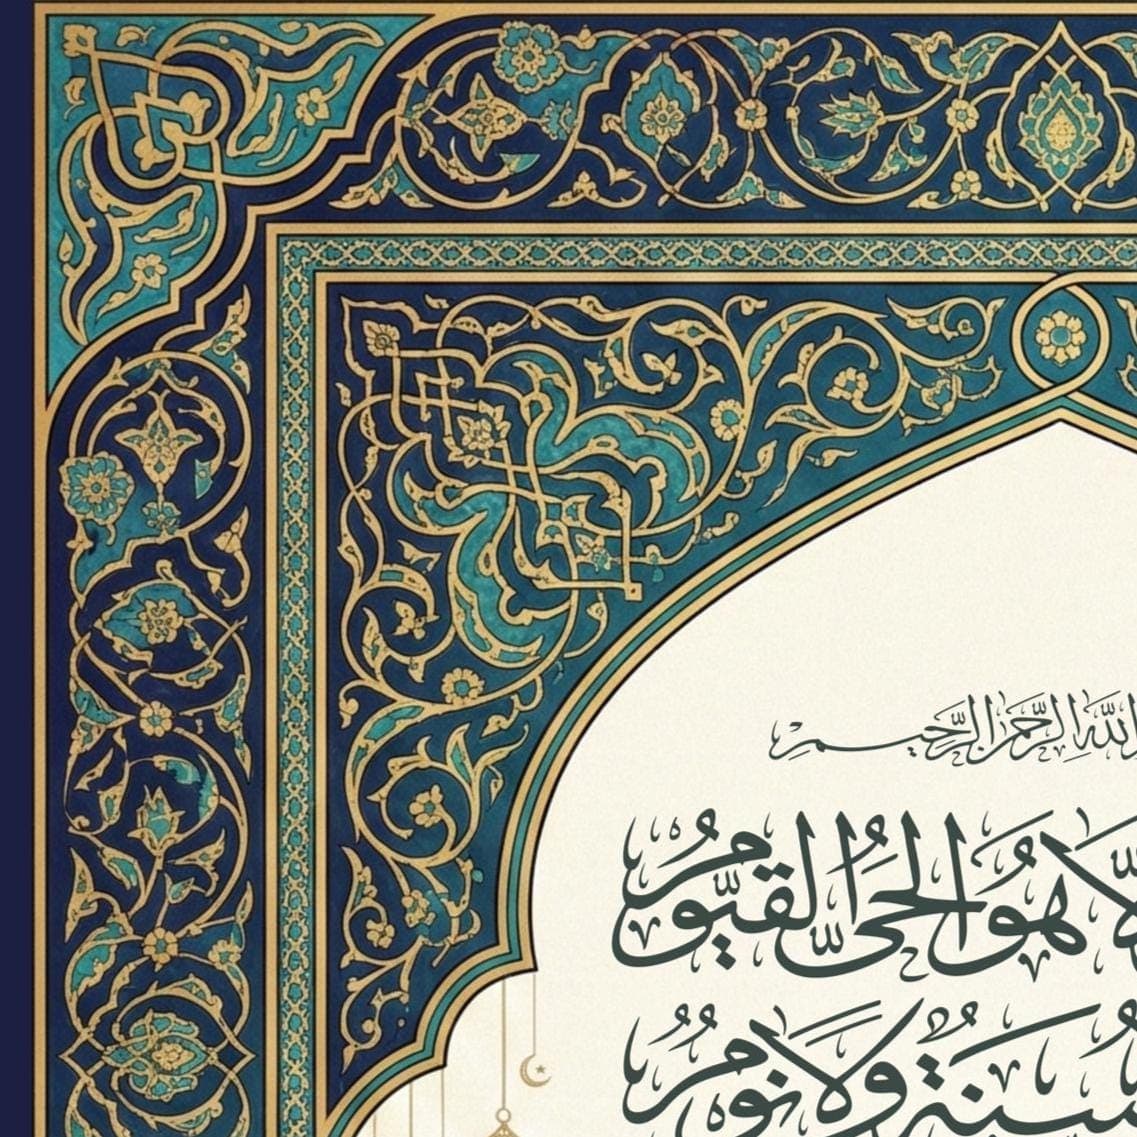 الله الرحمن الرحيم
هُوَ الْحَيُّ الْقَيُّومُ
سِنَةٌ وَلَا نَوْمٌ